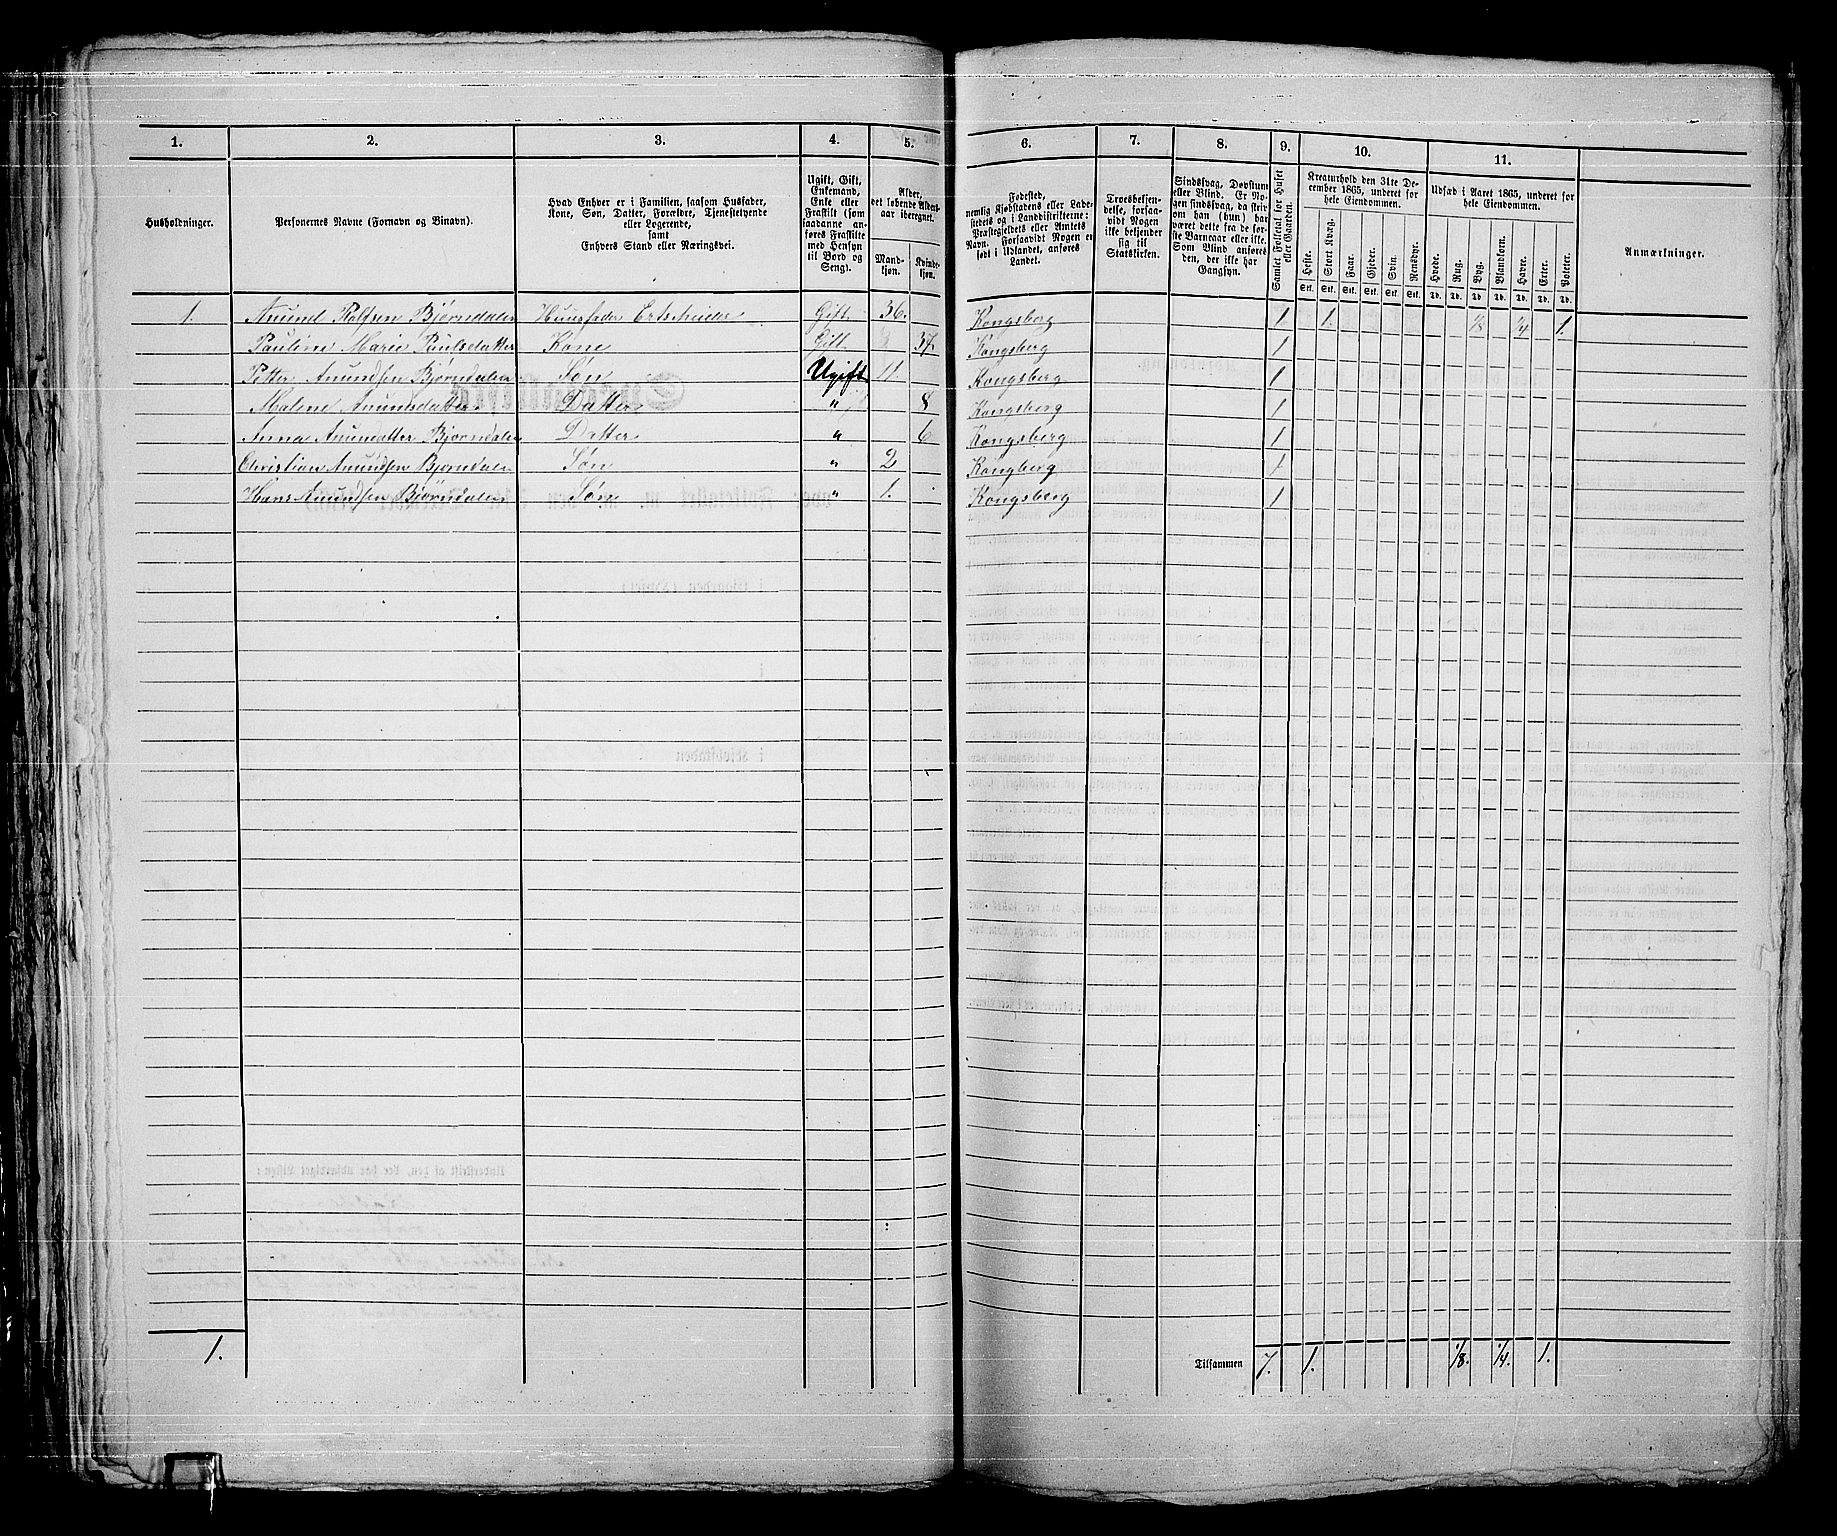 1. 2. 3. 4. 5. 6. 7. 8. 9. 10. 11.
Husholdninger.
Personernes Navne (Fornavn og Binavn).
Hvad Enhver er i Familien, saasom Husfader,
Kone, Søn, Datter, Forældre, Tjenestetyende
eller Logerende,
samt
Enhvers Stand eller Næringsvei.
Ugift, Gift,
Enkemand,
Enke eller
Fraskilt (som
saadanne an-
føres Fraskilte
med Hensyn
til Bord og
Seng).
Alder,
det løbende Alders-
aar iberegnet.
Mand-
kjøn.
Kvinde-
kjøn.
Fødested,
nemlig Kjøbstadens eller Lade-
stedets og i Landdistrikterne:
Præstegjeldets eller Amtets
Navn. Forsaavidt Nogen er
født i Udlandet, anføres
Landet.
Troesbekjen-
delse, forsaa-
vidt Nogen
ikke bekjender
sig til
Statskirken.
Sindssvag, Døvstum
eller Blind. Er No-
gen sindssvag, da skriv
om han (hun) har
været dette fra de før-
ste Barneaar eller ikke.
Som Blind anføres
den, der ikke har
Gangsyn.
Samlet Folketal for Huset
eller Gaarden.
Kreaturhold den 31te De-
cember 1865, underet for
hele Eiendommen.
Heste. Stort Kvæg. Faar. Gjeder. Svin. Rensdyr.
Stk. Stk. Stk. Stk. Stk. Stk.
Udsæd i Aaret 1865, underet for
hele Eiendommen.
Hvede. Rug. Byg. Blandkorn. Havre. Erter. Poteter.
Td. Td. Td. Td. Td. Td. Td.
Anmærkninger.
1. Anund Rolfsen Bjørndalen Huusfader Ertscheider Gift 36. Kongsberg 1 1. 1/8 1/4 1.
Pauline Marie Paulsdatter Kone Gift 37. Kongsberg 1
Petter Anundsen Bjørndalen Søn Ugift 11. Kongsberg 1
Malene Anunsdatter Datter " 8 Kongsberg 1
Anna Anundatter Bjørndalen Datter " 6 Kongsberg 1
Christian Anundsen Bjørndalen Søn " 2 Kongberg 1
Hans Anundsen Bjørndalen Søn " 1. Kongsberg 1
1. Tilsammen 7. 1. 1/8. 1/4. 1.